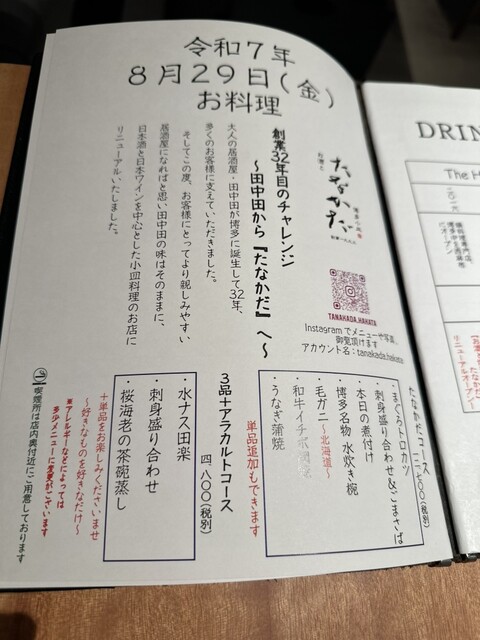 令和７年
８月２９日(金)
お料理
料理と
たなかだ
博多小皿
創業32年目のチャレンジ
～田中田から『たなかだ』へ～
大人の居酒屋・田中田が博多に誕生して32年、
多くのお客様に支えていただきました。
そしてこの度、お客様にとってより親しみやすい
居酒屋になればと思い田中田の味はそのままに、
日本酒と日本ワインを中心とした小皿料理のお店に
リニューアルいたしました。
TANAKADA.HAKATA
Instagramでメニューや写真、
御覧頂けます
アカウント名：tanakada.hakata
たなかだコース
(税別)
・まぐろトロカツ
・刺身盛り合わせ&ごまさば
・本日の煮付け
・博多名物 水炊き椀
・毛ガニ～北海道～
・和牛イチボ
・うなぎ蒲焼
単品追加もできます
3品+アラカルトコース
四八〇〇(税別)
・水ナス田楽
・刺身盛り合わせ
・桜海老の茶碗蒸し
+単品をお楽しみくださいませ
～好きなものを好きなだけ～
※アレルギーなどによっては
多少メニューに変更がございます
喫煙所は店内奥付近にご用意しております
DRIN
The H
二〇一六
博多中
にオープン
リニューアルオープン